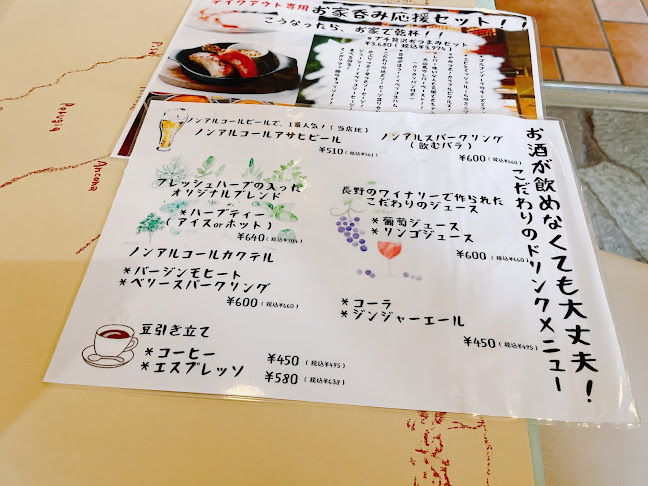 テイクアウト専用 お家呑み応援セット!!
こうなったら、お家で乾杯!!
*プチ贅沢おつまみセット
¥3,680(税込¥3,974)
お酒が飲めなくても大丈夫!
こだわりのドリンクメニュー
ノンアルコールビールで、1番人気!(当店比)
ノンアルコールアサヒビール
¥510(税込¥561)
ノンアルスパークリング
(飲むバラ)
¥600(税込¥660)
フレッシュハーブの入った
オリジナルブレンド
*ハーブティー
(アイスorホット)
¥640(税込¥704)
長野のワイナリーで作られた
こだわりのジュース
*葡萄ジュース
*リンゴジュース
¥600(税込¥660)
ノンアルコールカクテル
*バージンモヒート
*ベリースパークリング
¥600(税込¥660)
*コーラ
*ジンジャーエール
¥450(税込¥495)
豆引き立て
*コーヒー ¥450(税込¥495)
*エスプレッソ ¥580(税込¥638)
Pisa
Perugia
Ancona